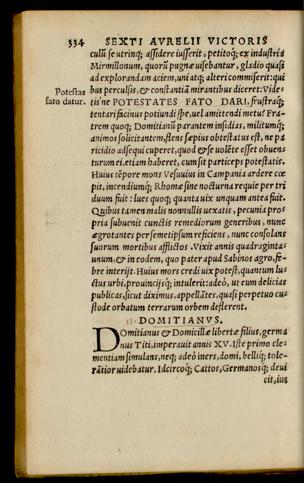 334 SEXTI AVRELII VICTORIS
culū se utrinq; assidere iusserit, petitoq; ex industria
Mirmillonum, quorū pugnæ uisebantur, gladio quasi
ad explorandam aciem, uni atq; alteri commiserit: qui
bus perculsis, & constantiā mirantibus diceret: Vide-
tis'ne POTESTATES FATO DARI, frustraq;
tentari facinus potiundi spe, uel amittendi metu? Fra
trem quoq; Domitianū parantem insidias, militumq;
animos solicitantem, flens sæpius obtestatus est, ne pa
ricidio adsequi cuperet, quod & se uolēte esset obuen-
turum ei, etiam haberet, cum sit particeps potestatis.
Huius tēpore mons Vesuuius in Campania ardere cœ
pit, incendiumq; Rhomæ sine nocturna requie per tri
duum fuit: lues quoq; quanta uix unquam antea fuit.
Quibus tamen malis nonnullis uexatis, pecunia pro-
pria subuenit cunctis remediorum generibus, nunc
ægrotantes per semetipsum reficiens, nunc consolans
suorum mortibus afflictos. Vixit annis quadraginta-
unum, & in eodem, quo pater apud Sabinos agro, fe-
bre interijt. Huius mors credi uix potest, quantum lu-
ctus urbi, prouincijsq; intulerit: adeò, ut eum delicias
publicas, sicut diximus, appellātes, quasi perpetuo cu-
stode orbatum terrarum orbem deflerent.
Potestas
fato datur.
DOMITIANVS.
Domitianus & Domicillæ libertæ filius, germa
nus Titi, imperauit annis XV. Iste primo cle-
mentiam simulans, neq; adeò iners, domi, belliq; tole-
rātior uidebatur. Idcircoq; Cattos, Germanosq; deui
cit, ius